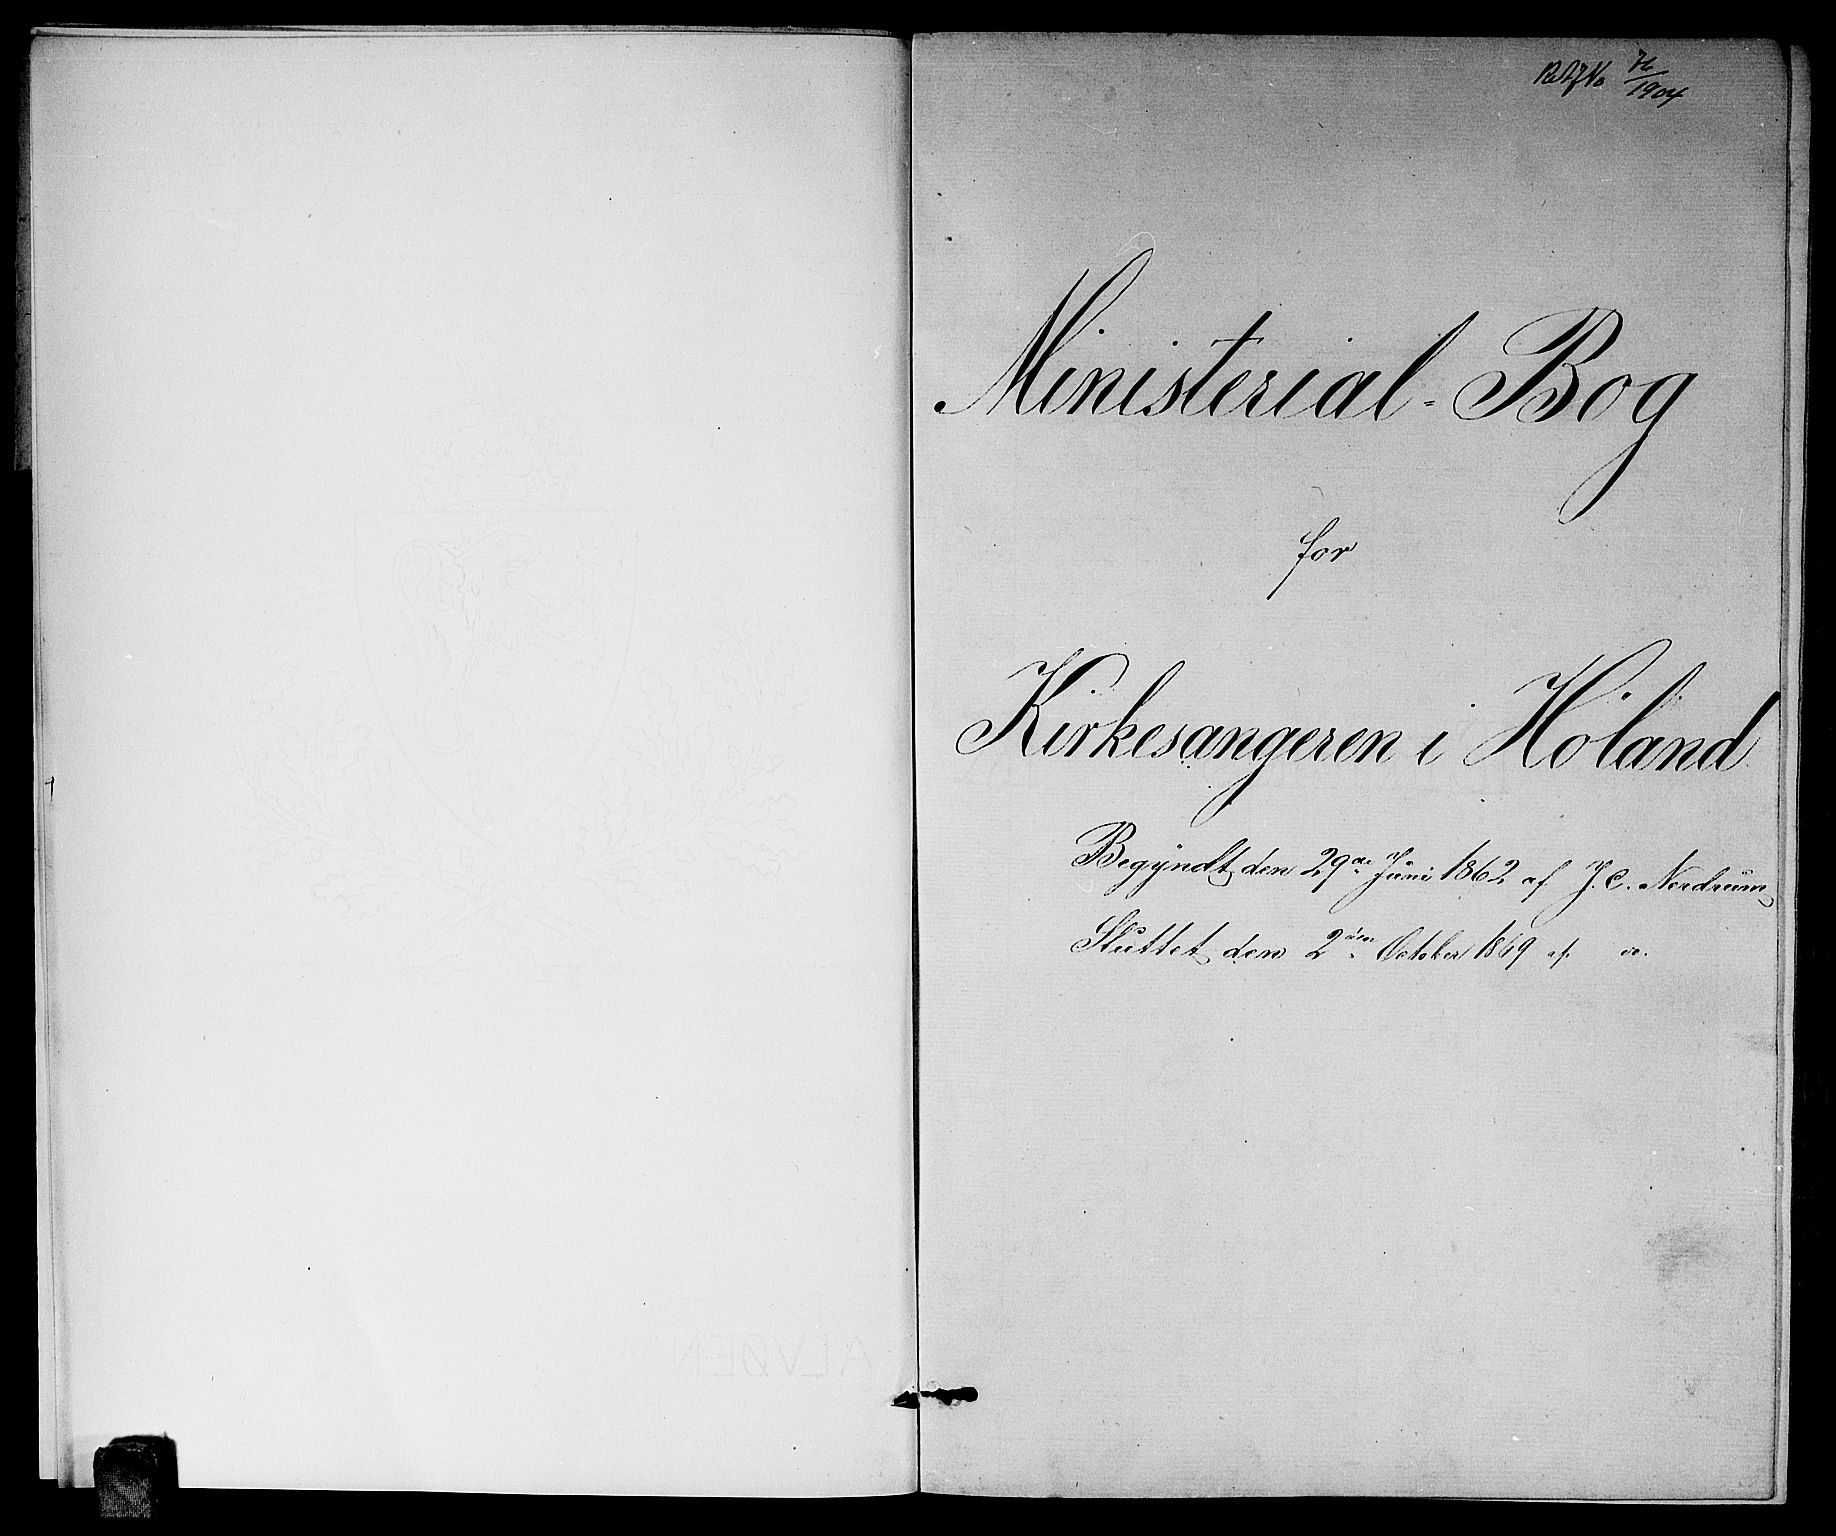 76/1904
Ministerial-Bog
for
Kirkesangeren i Höland
Begyndt den 29de Juni 1862 af J. C. Nordrum
Sluttet den 2den October 1869 af do.
ALVØEN